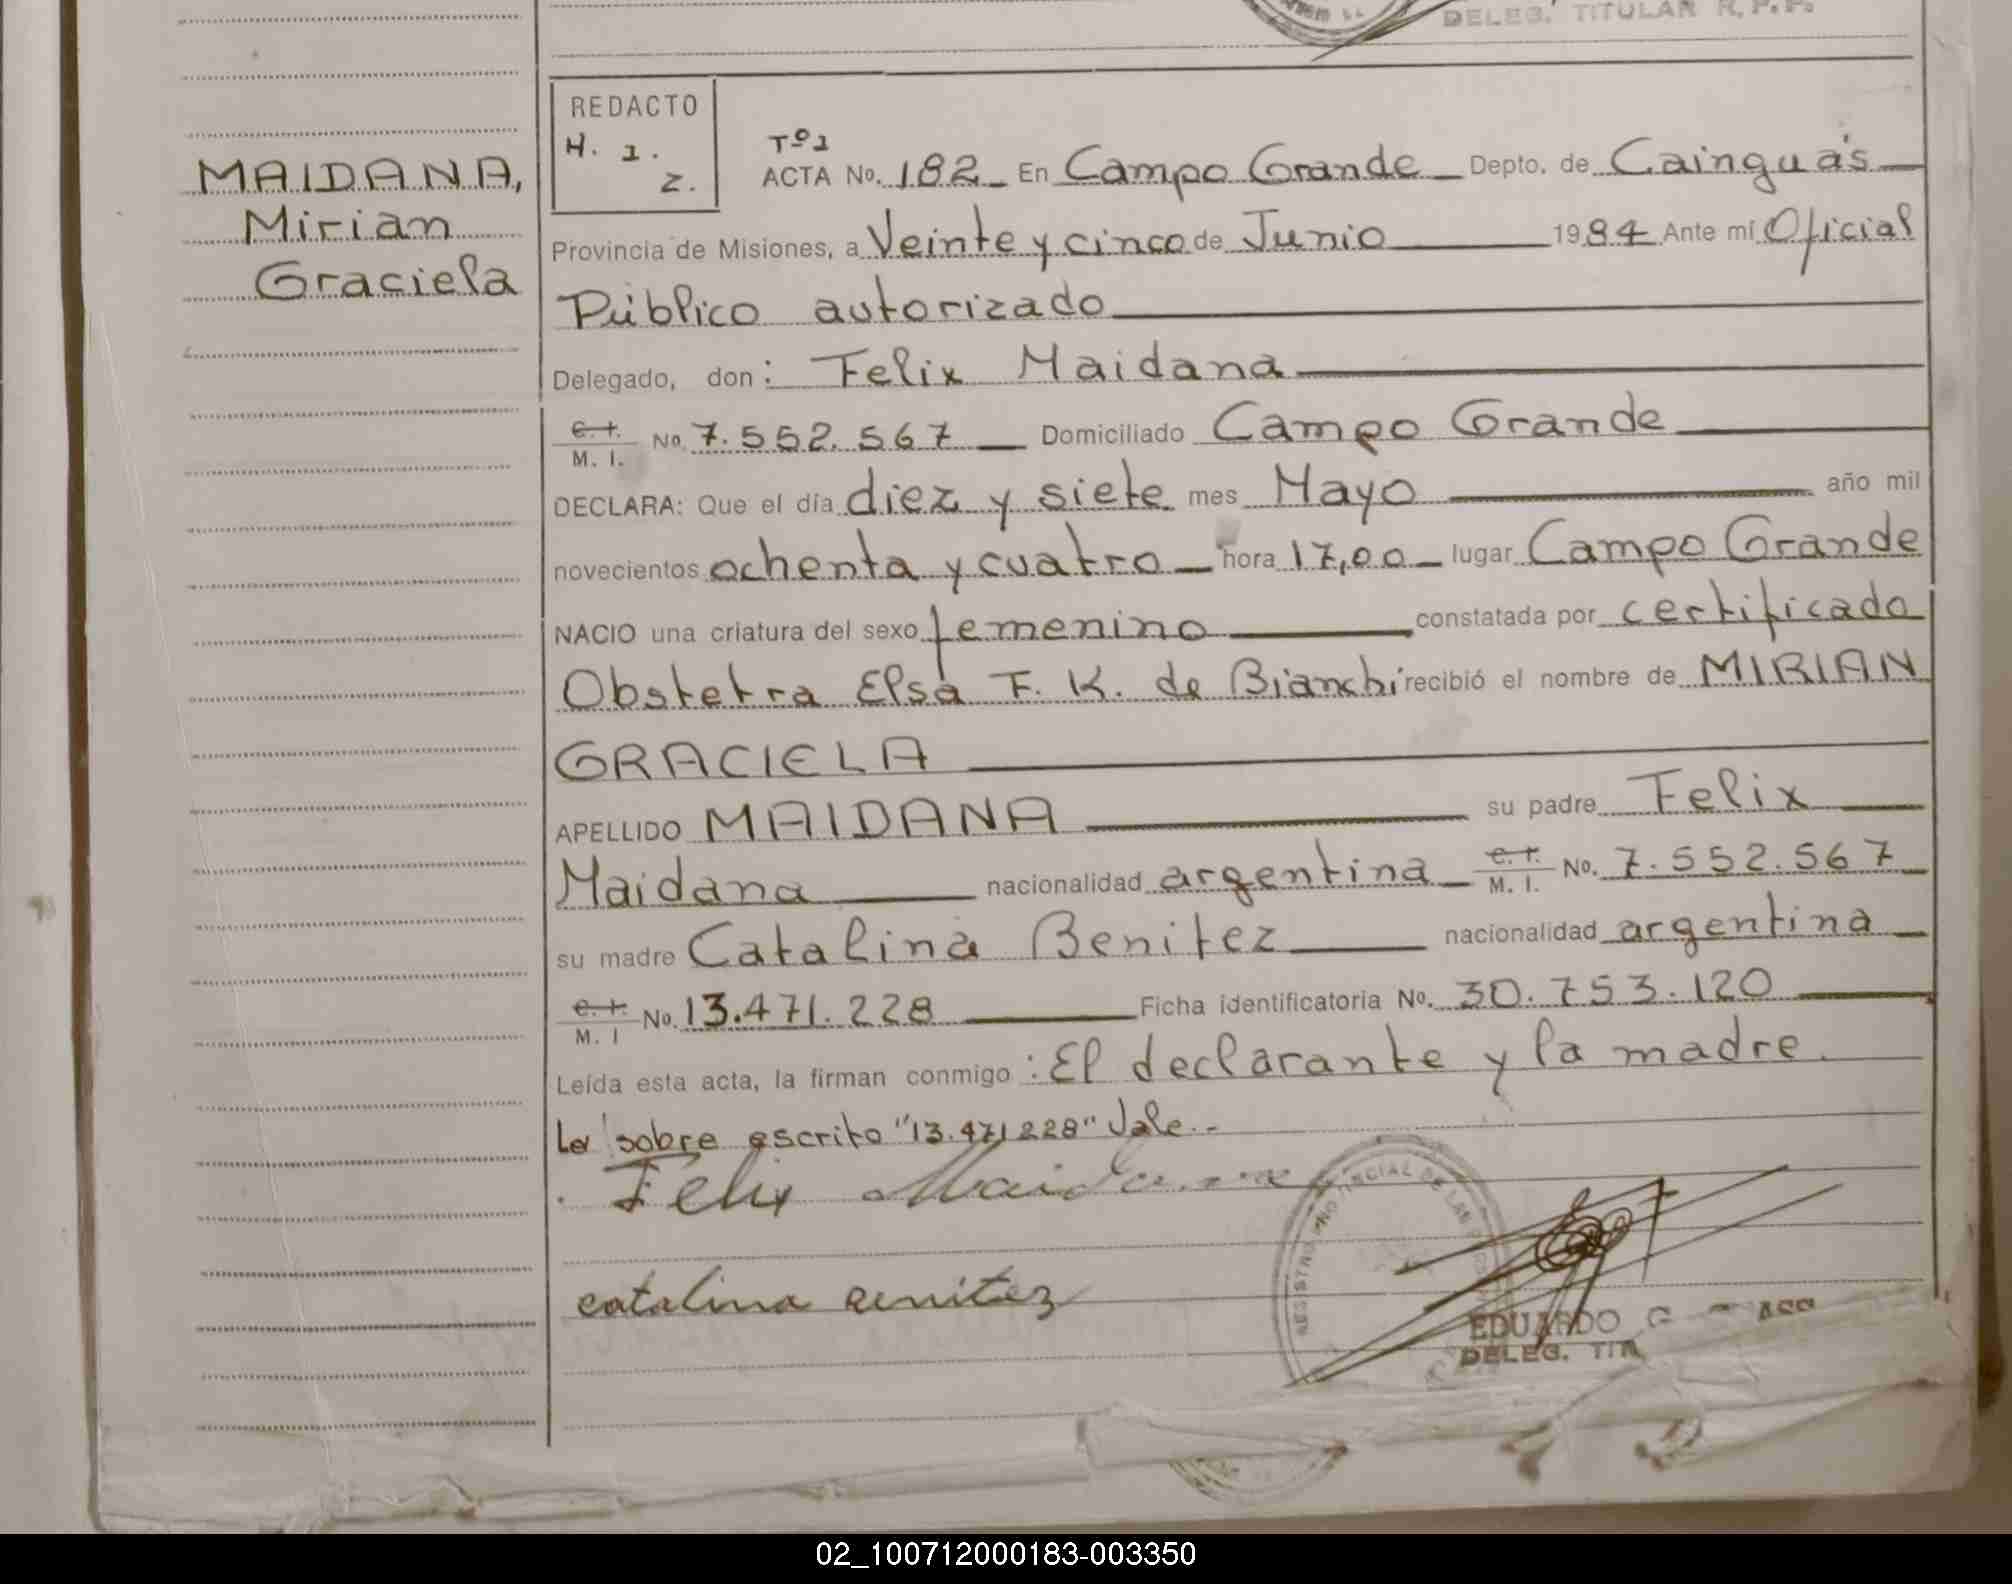 DELEG. TITULAR R.P.P.
MAIDANA,
Mirian
Graciela
REDACTO
H. 1.
Z.
Tº1
ACTA No. 182 En Campo Grande Depto. de Cainguás
Provincia de Misiones, a Veinte y cinco de Junio 1984 Ante mí Oficial
Público autorizado
Delegado, don: Felix Maidana
C. I. M. I. No 7.552.567 Domiciliado Campo Grande
DECLARA: Que el día diez y siete mes Mayo año mil
novecientos ochenta y cuatro hora 17,00 lugar Campo Grande
NACIO una criatura del sexo femenino constatada por certificado
Obstetra Elsa F. K. de Bianchi recibió el nombre de MIRIAN
GRACIELA
APELLIDO MAIDANA su padre Felix
Maidana nacionalidad argentina C. I. M. I. No. 7.552.567
su madre Catalina Benitez nacionalidad argentina
C. I. M. I No. 13.471.228 Ficha identificatoria No. 30.753.120
Leída esta acta, la firman conmigo: El declarante y la madre.
Lo sobre escrito "13.471228" Vale.-
Felix Maidana
catalina Benitez
REGISTRO PROVINCIAL DE LAS
EDUARDO
DELEG. TIT
02_100712000183-003350